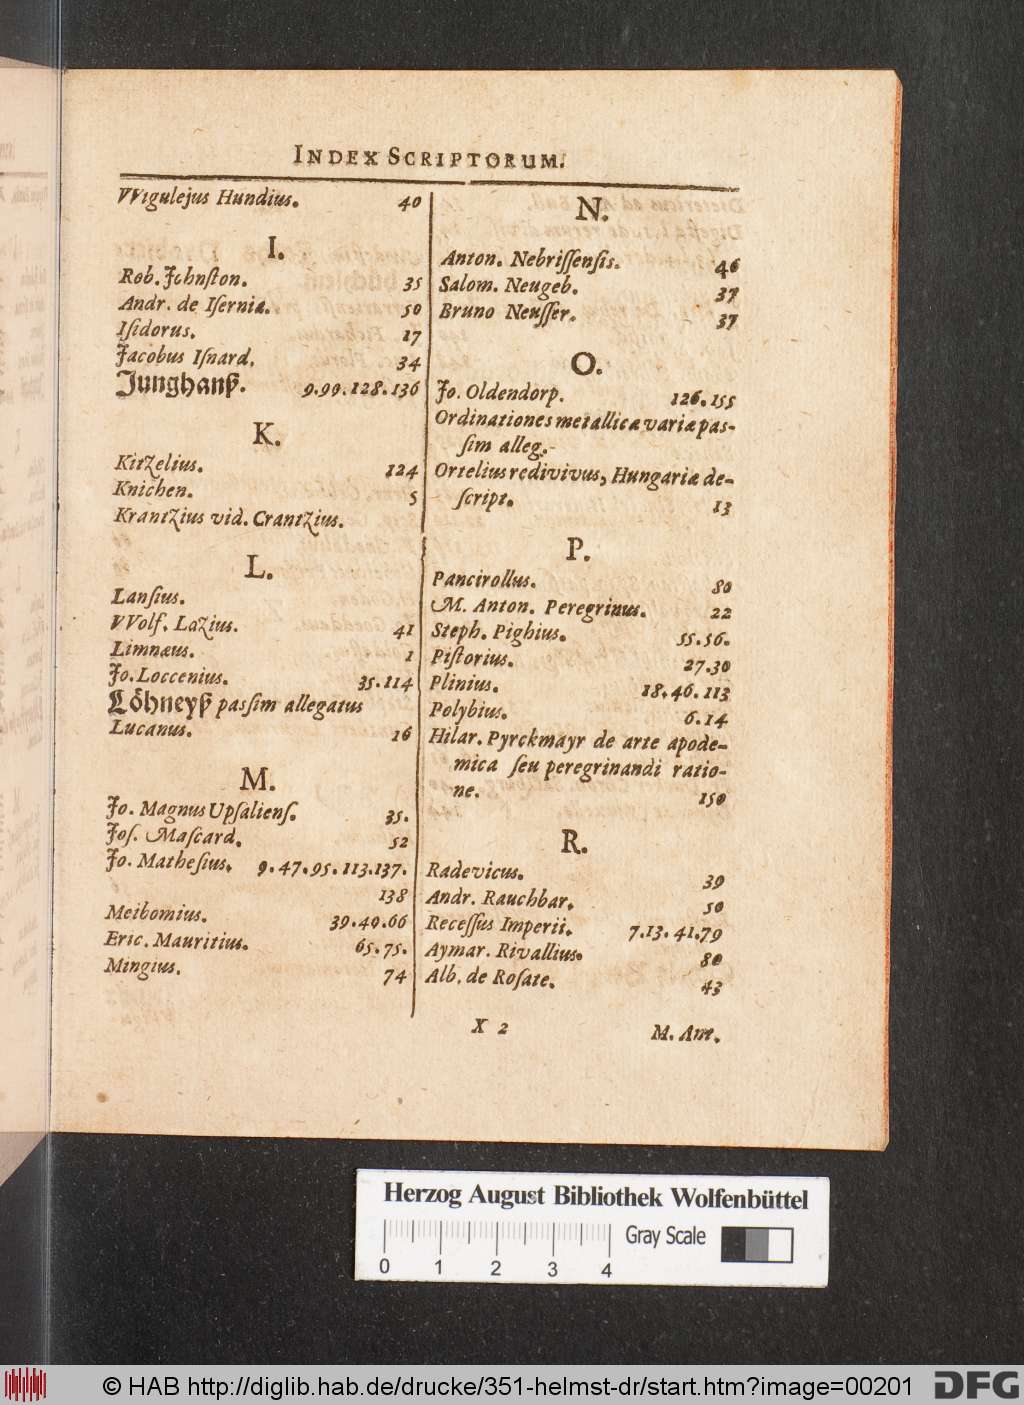 INDEX SCRIPTORUM.
VVigulejus Hundius. 40
I.
Rob. Johnſton. 35
Andr. de Iſernia. 50
Iſidorus. 17
Jacobus Iſnard. 34
Junghanß. 9.90.128.136
K.
Kitzelius. 124
Knichen. 5
Krantzius vid. Crantzius.
L.
Lanſius.
VVolf. Lazius. 41
Limnæus. 1
Jo. Loccenius. 35.114
Löhneyß paſſim allegatus
Lucanus. 16
M.
Jo. Magnus Upſalienſ. 35.
Joſ. Maſcard. 52
Jo. Matheſius. 9.47.95.113.137.
138
Meibomius. 39.40.66
Eric. Mauritius. 65.75.
Mingius. 74
N.
Anton. Nebriſſenſis. 46
Salom. Neugeb. 37
Bruno Neuſſer. 37
O.
Jo. Oldendorp. 126.155
Ordinationes metallicæ variæ paſ-
ſim alleg.
Ortelius redivivus, Hungariæ de-
ſcript. 13
P.
Pancirollus. 80
M. Anton. Peregrinus. 22
Steph. Pighius. 55.56.
Piſtorius. 27.30
Plinius. 18.46.113
Polybius. 6.14
Hilar. Pyrckmayr de arte apode-
mica ſeu peregrinandi ratio-
ne. 150
R.
Radevicus. 39
Andr. Rauchbar. 50
Receſſus Imperii. 7.13.41.79
Aymar. Rivallius. 80
Alb. de Roſate. 43
X 2 M. Ant.
Herzog August Bibliothek Wolfenbüttel
Gray Scale
0 1 2 3 4
© HAB http://diglib.hab.de/drucke/351-helmst-dr/start.htm?image=00201
DFG